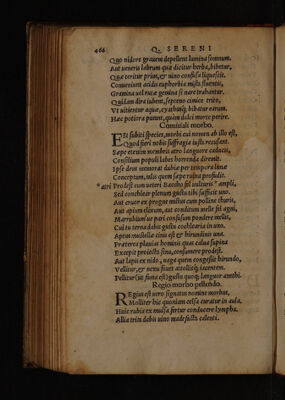 466
Q. SERENI
Quo nidore grauem depellent lumina somnum.
Aut ueneris labrum quæ dicitur herba, bibetur,
Quæ teritur prius, & uino consisa liquescit.
Conueniunt acidis euphorbia mista fluentis,
Gramina uel ruæ gemina si nare trahantur.
Quidam dira iubent,
Vt uitientur aquæ,
Hæc potiora putant, quàm dulci morte perire.
Comitiali morbo.
EST subiti species morbi cui nomen ab illo est,
Quod fieri nobis suffragia iusta recusant.
Sæpe etenim membris atro languore caducis,
Consilium populi labes horrenda diremit.
Ipse deus memorat dubiæ per tempora lunæ
Conceptum, talis quem sæpe ruina profudit.
Prodest cum ueteri Baccho fel uulturis ampli,
Sed cochlear plenum gustu tibi sufficit uno.
Aut cruor ex progne mistus cum polline thuris,
Aut apium
Marrubium'ue pari consistum pondere mellis,
Cui tu terna dabis gustu cochlearia in uno.
Aptus mustellæ cinis est & hirundinis una.
Præterea pluuias hominis quas calua supina
Excepit proiecta sinu, consumere prodest.
Aut lapis ex nido, uaga quem congessit hirundo,
Vellitur, & nexu fiuet attollitque iacentem.
Pellitur (ut fama est) gustu quoque languor
Regio morbo pellendo.
REgius est uero signatus nomine morbus,
Molliter hic quoniam celsa curatur in aula,
Huic rubia ex mulsa fertur conducere lympha.
Allia trita dabis uino madefacta calenti.